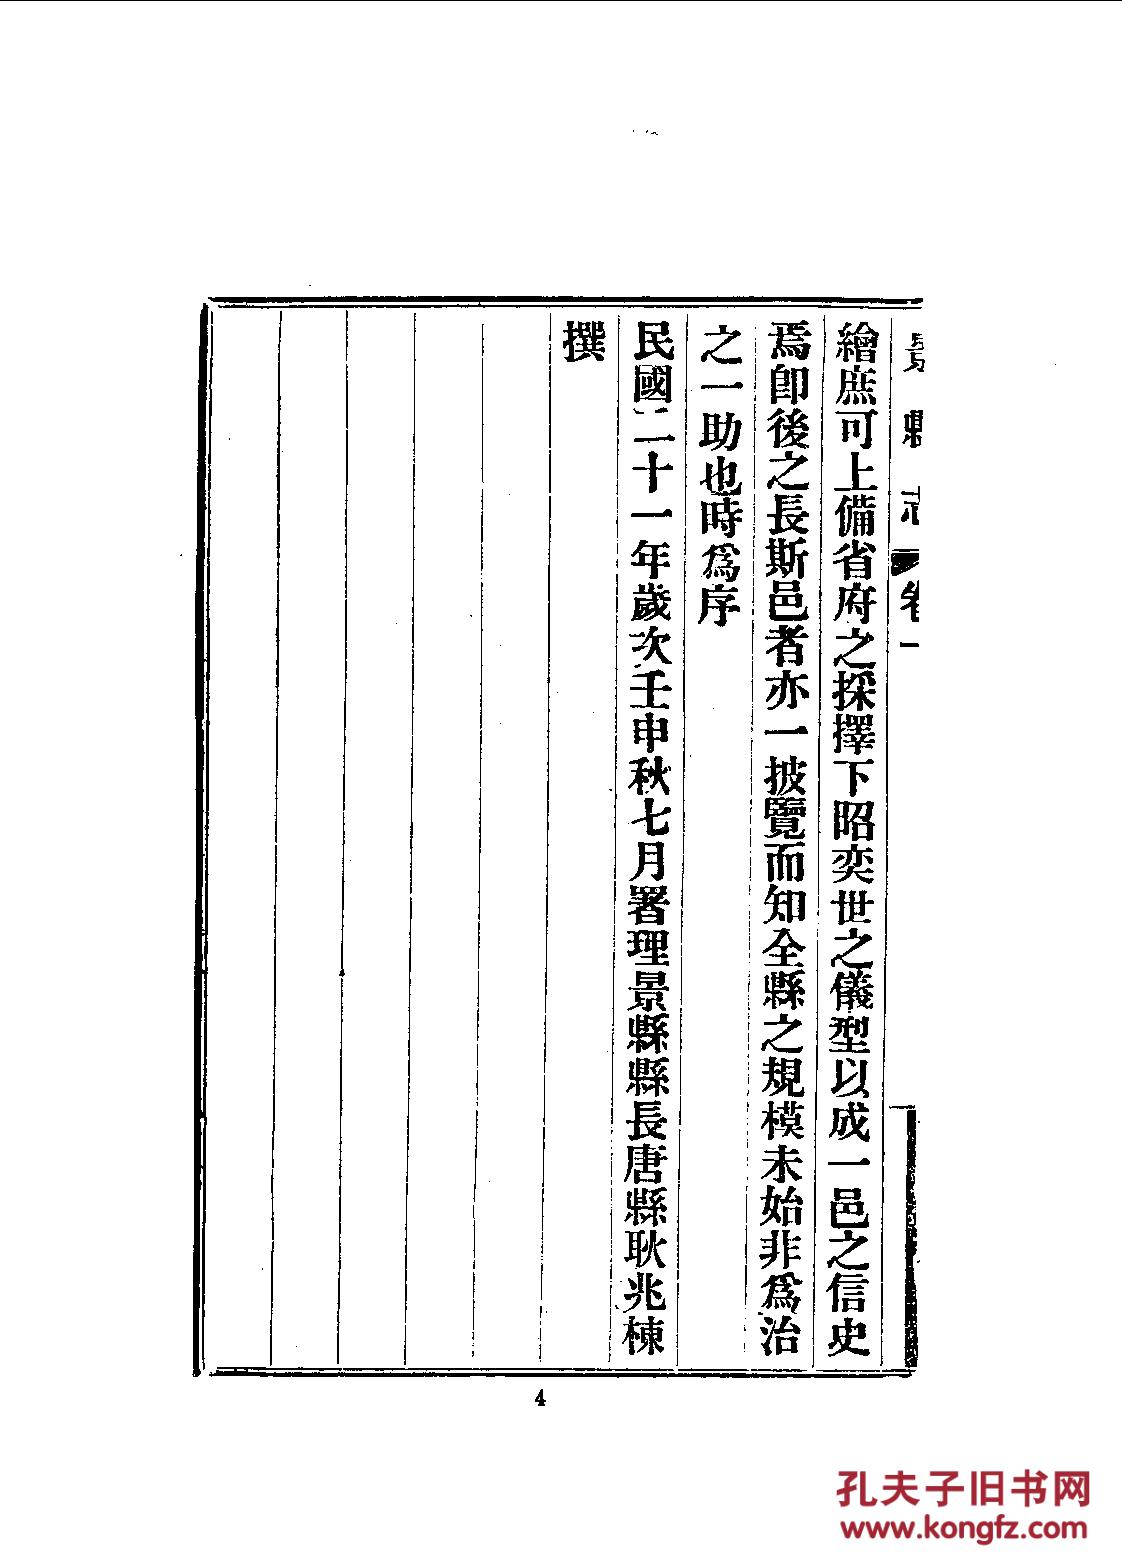 景縣志 卷一
繪庶可上備省府之採擇下昭奕世之儀型以成一邑之信史
焉卽後之長斯邑者亦一披覽而知全縣之規模未始非爲治
之一助也時爲序
民國二十一年歲次壬申秋七月署理景縣縣長唐縣耿兆棟
撰
4
孔夫子旧书网
www.kongfz.com